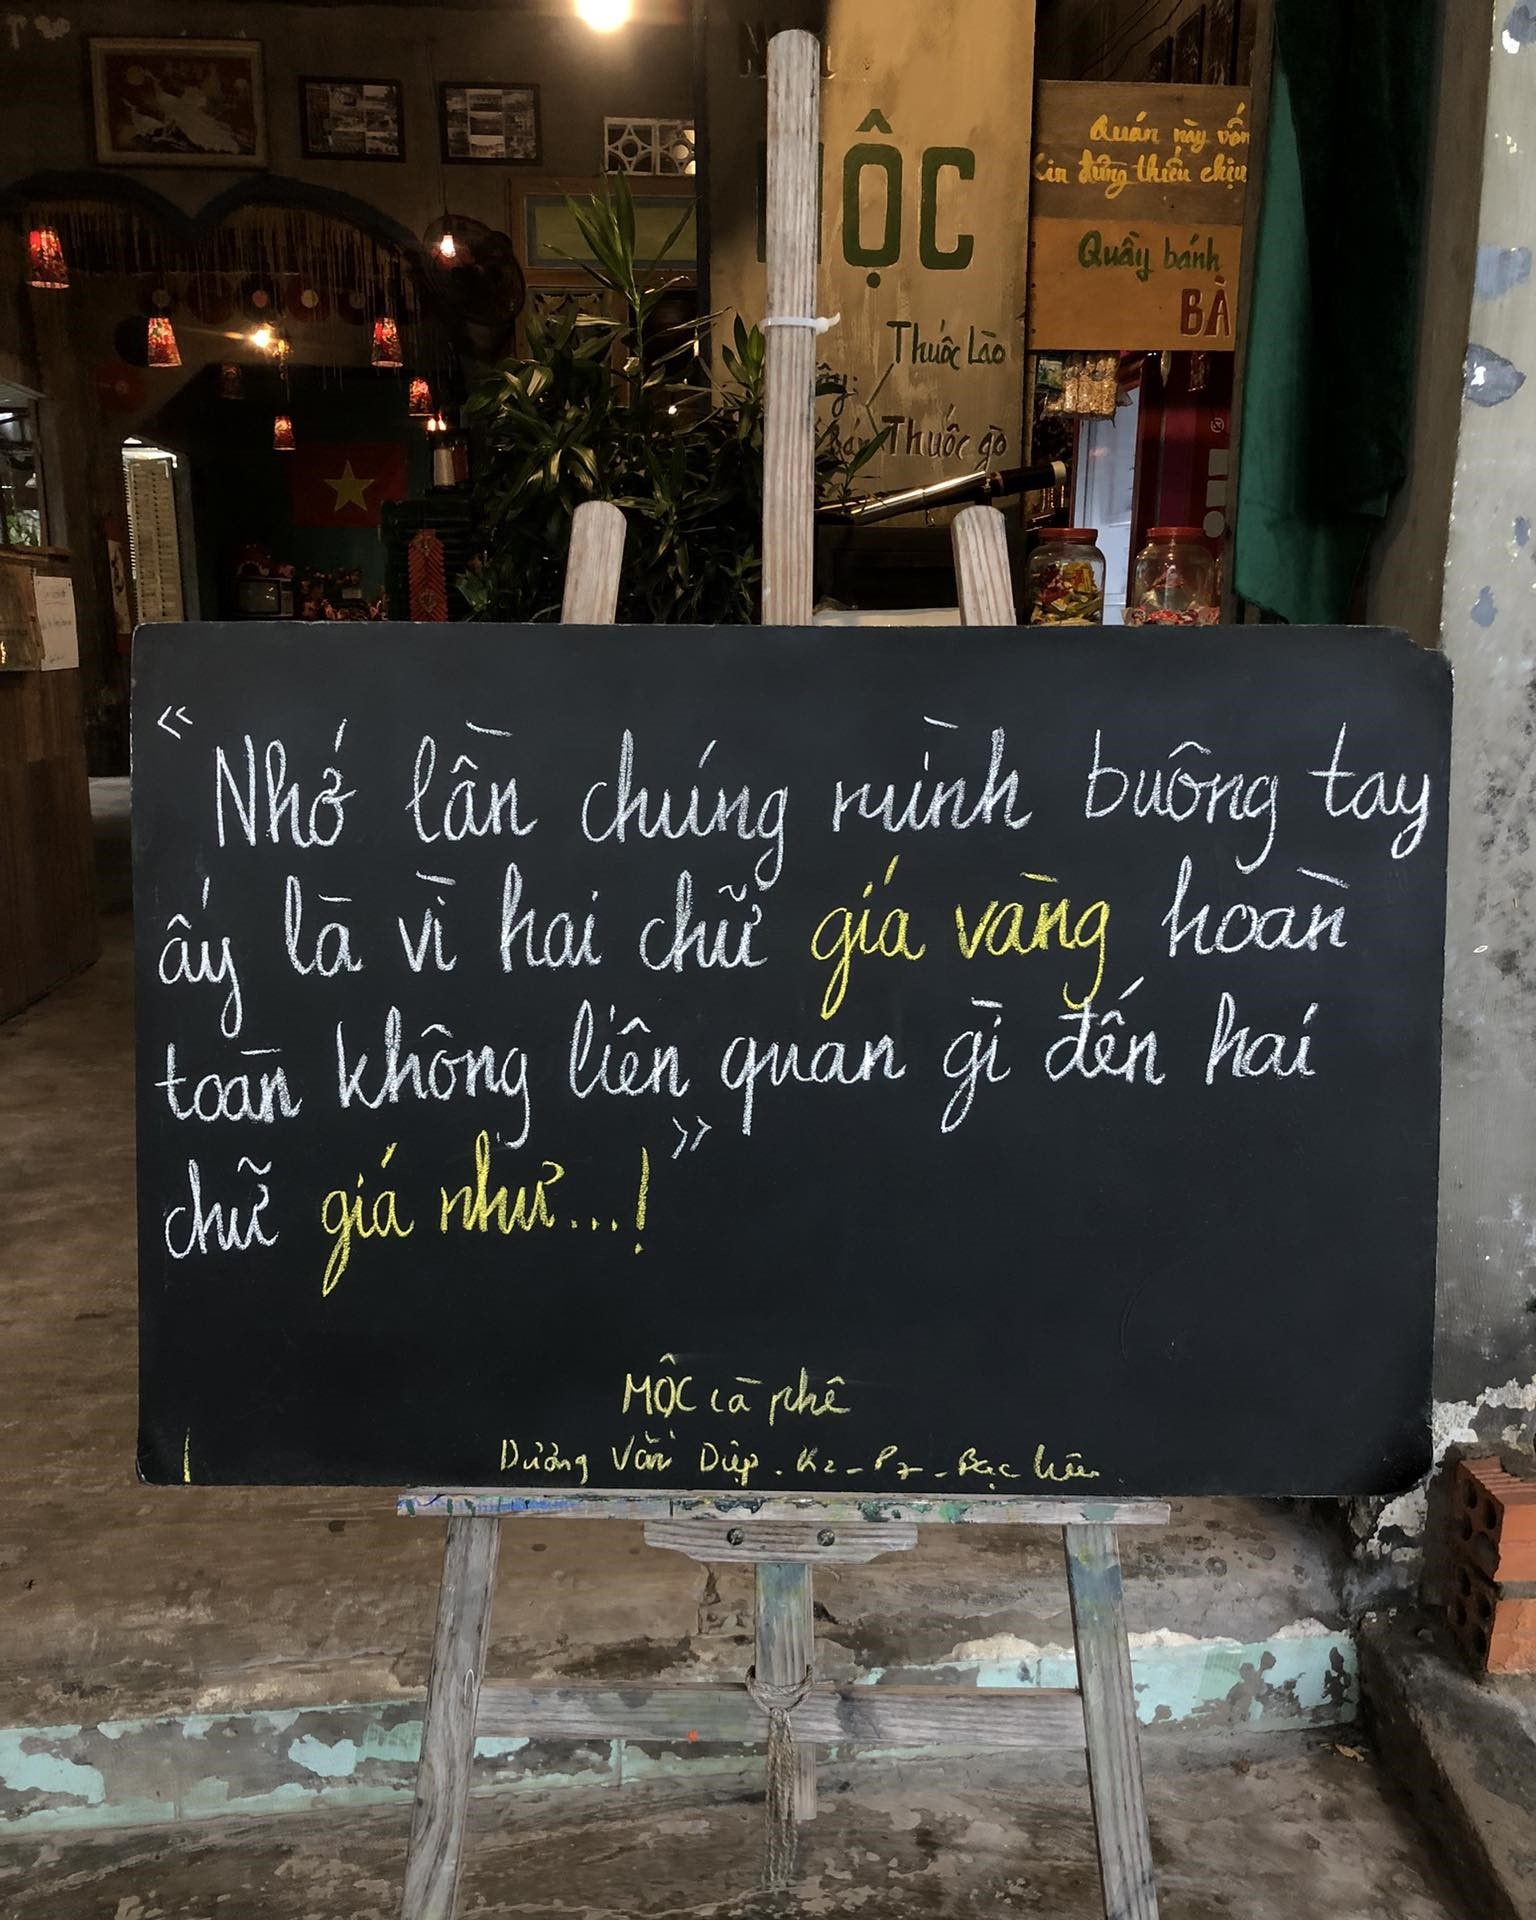 MỘC
Thuốc Lào
Thuốc gò
Quán này vốn
Xin đừng thiếu chịu
Quầy bánh
BÀ
“Nhớ lần chúng mình buông tay
ấy là vì hai chữ giá vàng hoàn
toàn không liên quan gì đến hai
chữ giá như...!”
MỘC cà phê
Dương Văn Diệp. K2_P7_Bạc Liêu